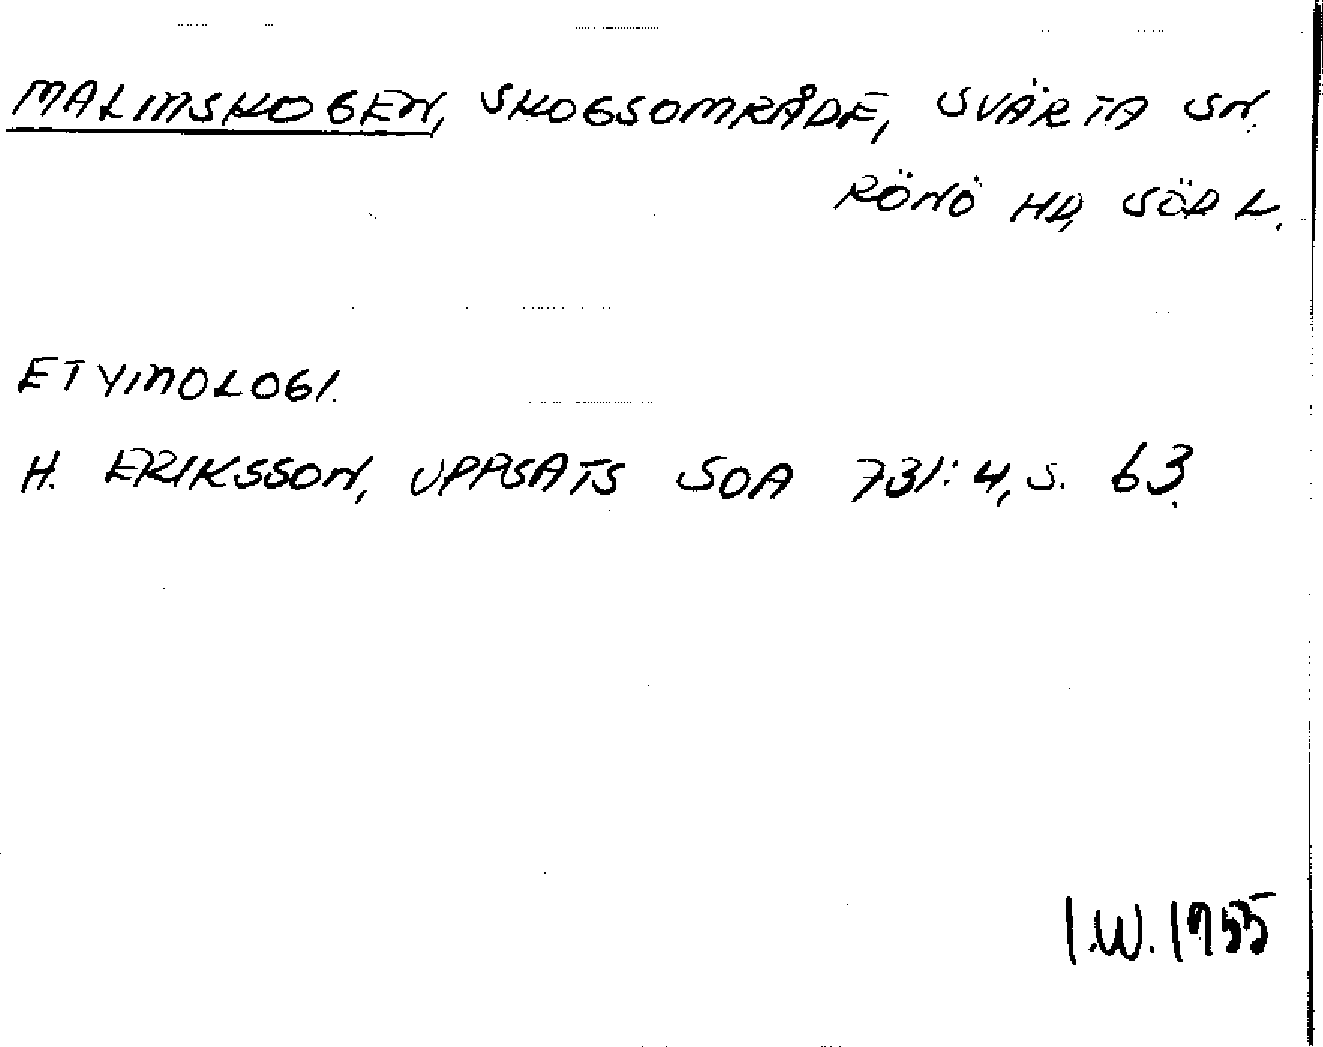 MALMSKOGEN, SKOGSOMRÅDE, SVÄRTA SN.
RÖNÖ HD, SÖD L.
ETYMOLOGI.
H. ERIKSSON, UPPSATS SOA 731:4, S. 63.
I.W. 1955